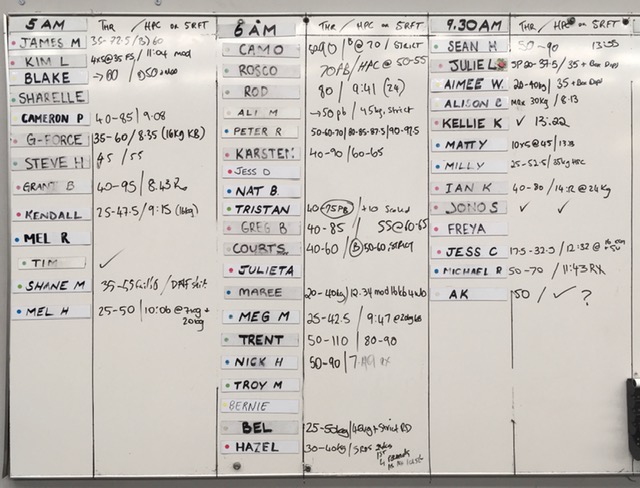 5 AM THR / HPC or 5RFT
JAMES M 35-72.5 / 3) 60
KIM L 4x5@35 FS / 11:04 mod
BLAKE → 80
SHARELLE
CAMERON P 40-85 / 9:08
G-FORCE 35-60 / 8:35 (16kg KB)
STEVE H / 55
GRANT B 40-95 / 8:43 Rx
KENDALL 25-47.5 / 9:15 (16kg)
MEL R
TIM ✓
SHANE M
MEL H 25-50 / 10:06 @ 7kg + 20kg
6 AM THR / HPC or 5RFT
CAMO B @ 70 / STRICT
ROSCO 70PB / HPC @ 50-55
ROD 80 / 9:41 (24)
ALI M → 50 pb / 45kg, Strict
PETER R 50-60-70/80-85-87.5/90-97.5
KARSTEN 40-90 / 60-65
JESS D
NAT B.
TRISTAN 40-75PB / Scaled
GREG B 40-85 / 55@60-65
COURTS. 40-60 / B 50-60 STRICT
JULIETA
MAREE 20-40kg / 12.34 mod 16kb
MEG M 25-42.5 / 9:47 @20kg KB
TRENT 50-110 / 80-90
NICK H 50-90 / rx
TROY M
BERNIE
BEL 25-50kg / Strict
HAZEL 30-40kg /
9.30AM THR / HPC or 5RFT
SEAN H 50-90 13:55
JULIE L 20-37.5 / 35 + Bar
AIMEE W. 20-40kg / 35 + Bar
ALISON B Max 30kg / 8.13
KELLIE K ✓ 13.22
MATTY 10x5@45 /
MILLY 25-52.5 / 35kg HPC
IAN K 40-80 / 14:12 @ 24kg
JONO S ✓ ✓
FREYA
JESS C 17.5-32.5 / 12:32 @
MICHAEL R 50-70 / 11:43 RX
AK 50 / ✓ ?